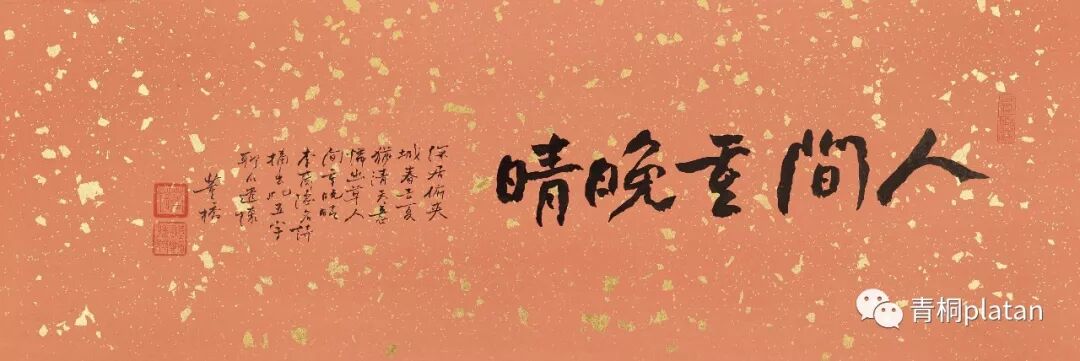 人間重晚晴
深居俯夾
城春去夏
猶清天意
憐幽草人
間重晚晴
李商隱名詩
摘出此五字
聊以遣懷
董橋
青桐platan